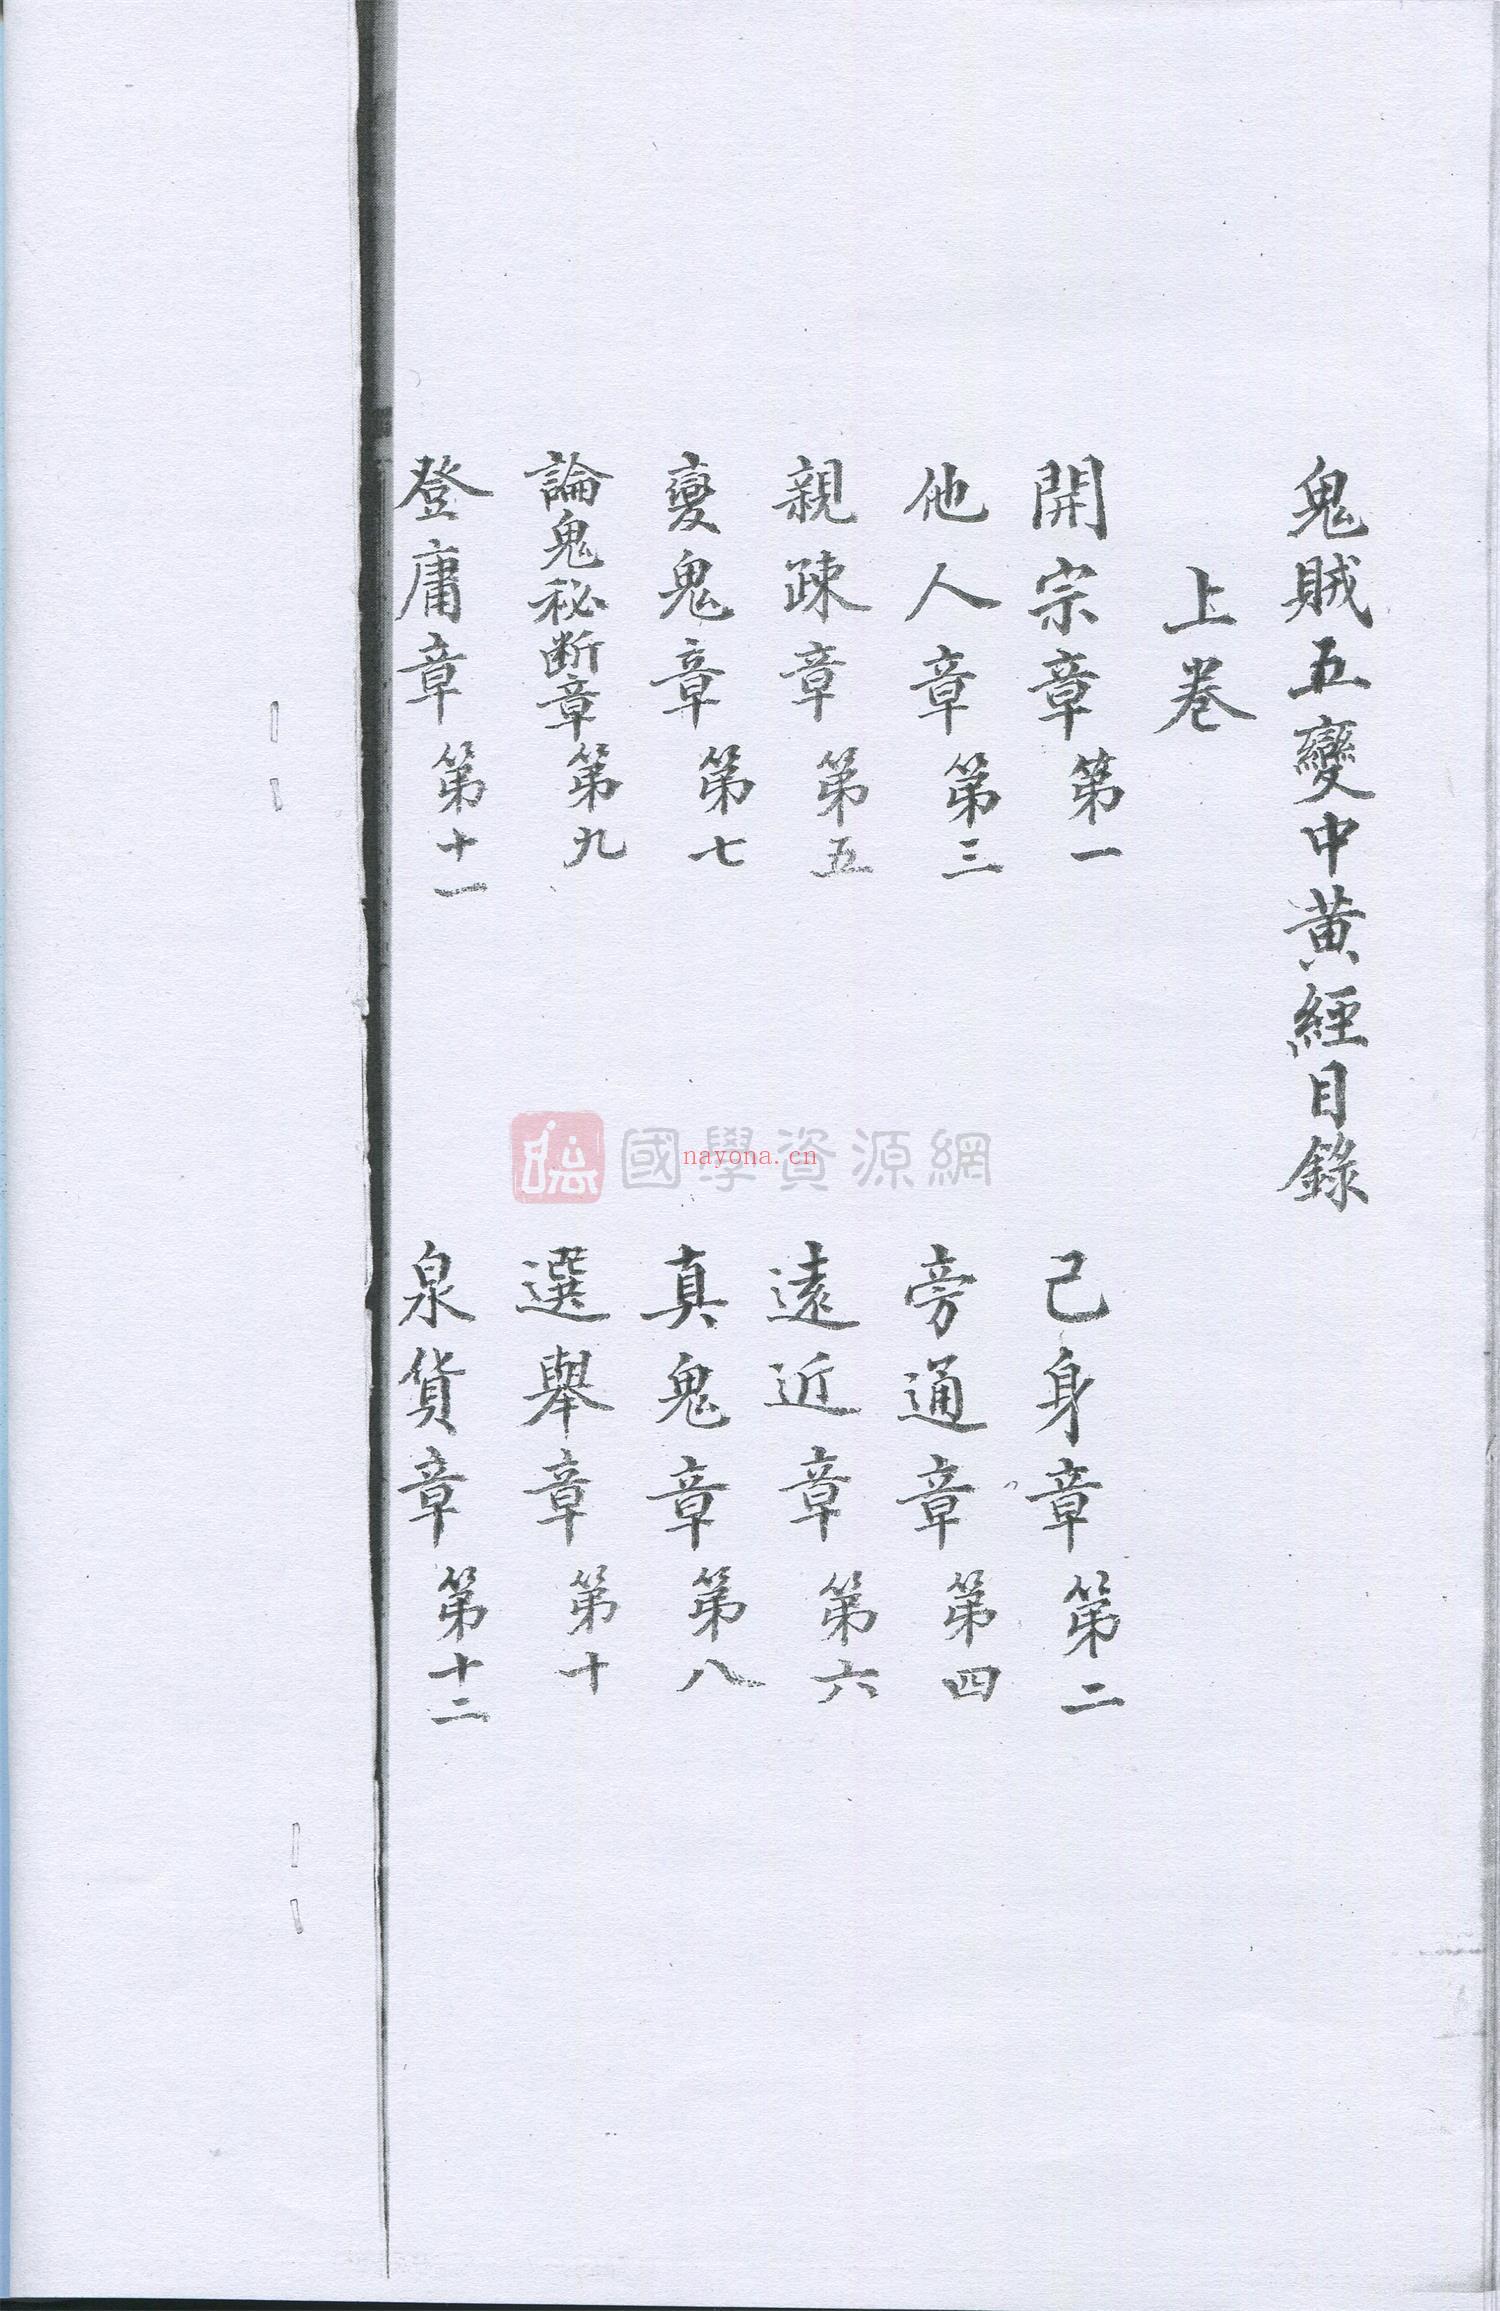 鬼賊五變中黃經目錄
上卷
開宗章第一
己身章第二
他人章第三
旁通章第四
親疎章第五
遠近章第六
變鬼章第七
真鬼章第八
論鬼秘斷章第九
選舉章第十
登庸章第十一
泉貨章第十二
國學資源網
nayona.cn